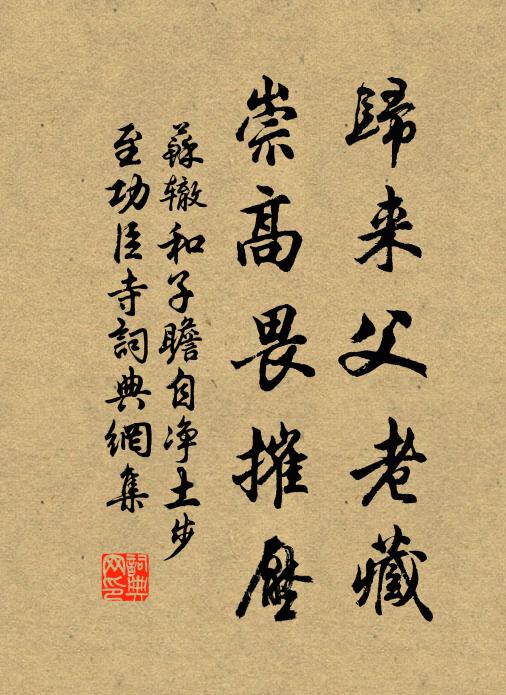 歸来父老藏
崇高畏摧壓
蘇辙和子瞻自净土步
至功臣寺詞典網集
詞典网印